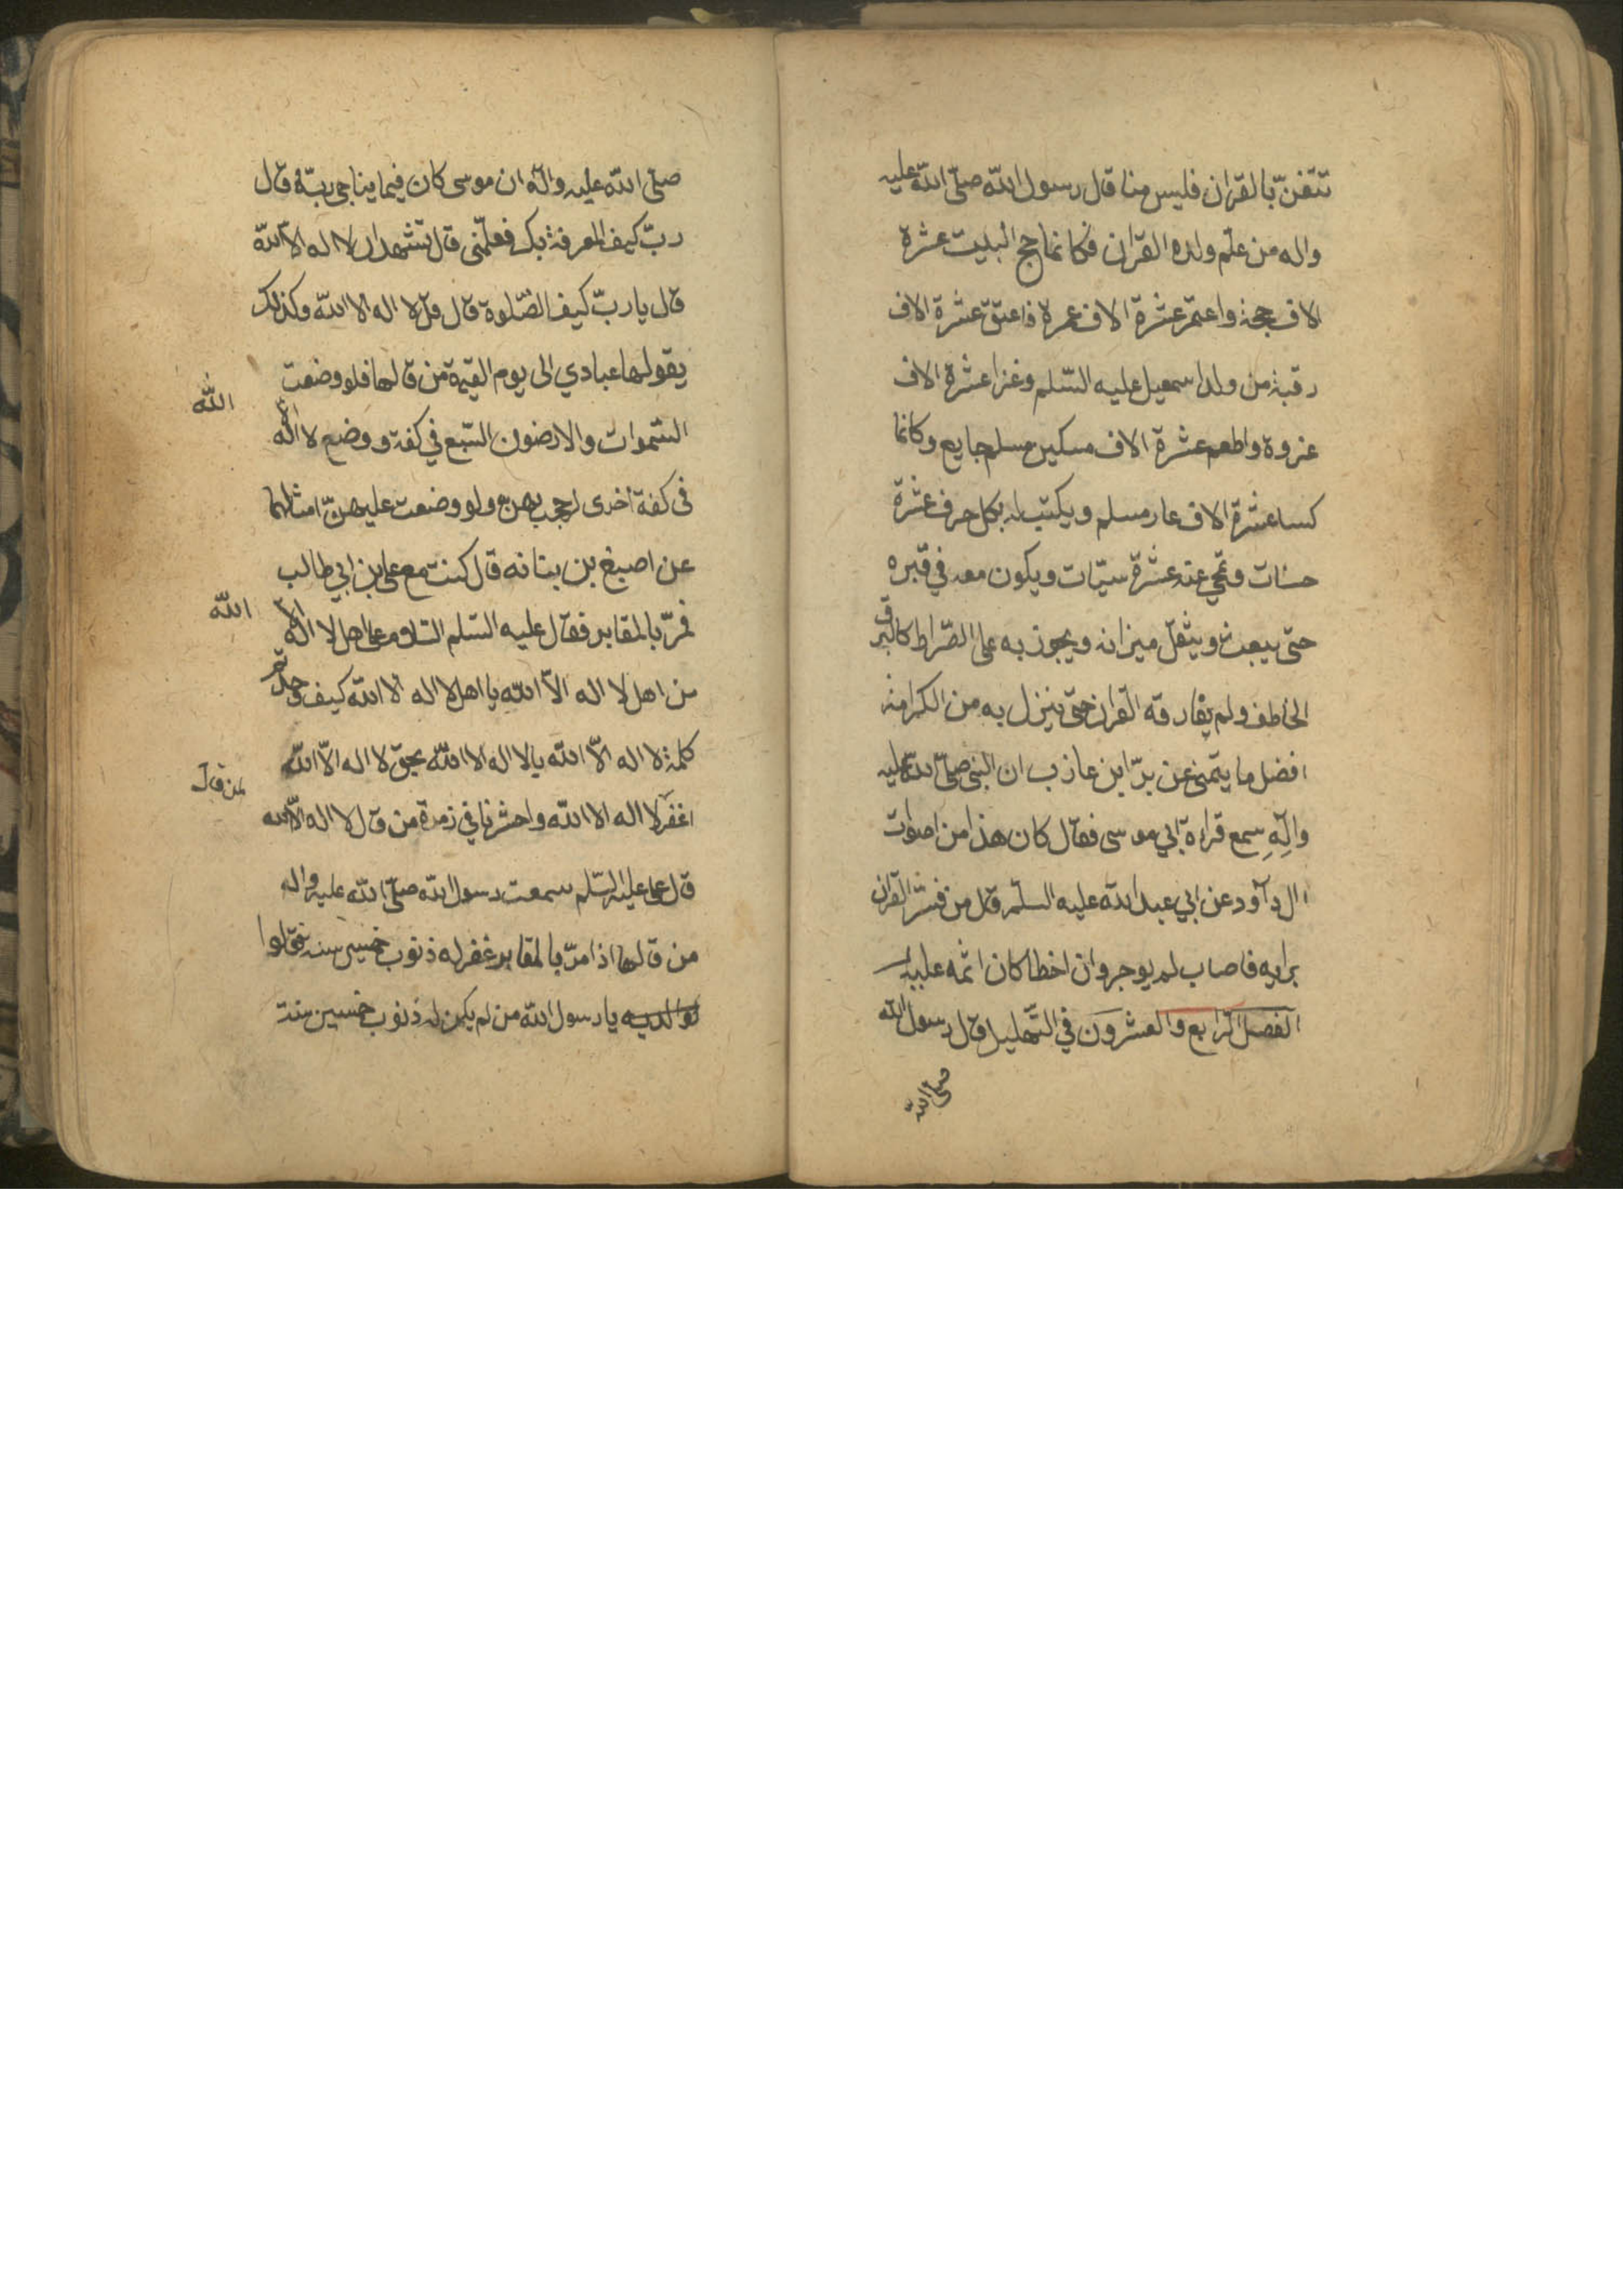 تتغنّ بالقران فليس منا قال رسول الله صلّى الله عليه
واله من علم ولده القران فكانما حج البيت عشرة
الاف حجة واعتمر عشرة الاف عمرة فاعتق عشرة الاف
رقبة من ولد اسمعيل عليه السّلم وغزا عشرة الاف
غزوة واطعم عشرة الاف مسكين مسلم جايع وكانما
كسا عشرة الاف عار مسلم ويكتب له بكل حرف عشرة
حسنات وتمحى عنه عشرة سيّات ويكون معه في قبره
حتى يبعث ويثقل ميزانه ويجوز به على الصّراط كالبرق
الخاطف ولم يفارقه القران حتى ينزل به من الكرامة
افضل ما يتمنى عن برّا ابن عازب ان النبي صلّى الله عليه
وآلِهِ سمع قراءة ابي موسى فقال كان هذا من اصوات
ال داود عن ابي عبد الله عليه السلم قال من فسّر القران
برايه فاصاب لم يوجر وان اخطا كان اثمه عليه
الفصل الرابع والعشرون في التّهليل قال رسول الله
صلى الله
صلّى الله عليه واله ان موسى كان فيما يناجي ربّه قال
ربّ كيف المعرفة بك فعلّمني قال تشهد ان لا اله الا الله
قال يا ربّ كيف الصّلوة قال قل لا اله الا الله وكذلك
يقولها عبادي الى يوم القيمة من قالها فلو وضعت
السّموات والارضون السّبع في كفة ووضع لا اله الا الله
في كفة اخرى لرجح بهن ولو وضعت عليهنّ امثالها
عن اصبغ بن بناته قال كنت مع علي بن ابي طالب
فمرّ بالمقابر فقال عليه السّلم السّلام على اهل لا اله الا الله
من اهل لا اله الاّ الله يا اهل لا اله الا الله كيف وجدتم
كلمة لا اله الاّ الله يا لا اله الا الله بحق لا اله الاّ الله
اغفر لمن قال لا اله الا الله واحشرنا في زمرة من قال لا اله الاّ الله
قال علي عليه السّلم سمعت رسول الله صلّى الله عليه واله
من قالها اذا مرّ بالمقابر غفر له ذنوب خمسين سنة فقالوا
يا رسول الله من لم يكن له ذنوب خمسين سنة